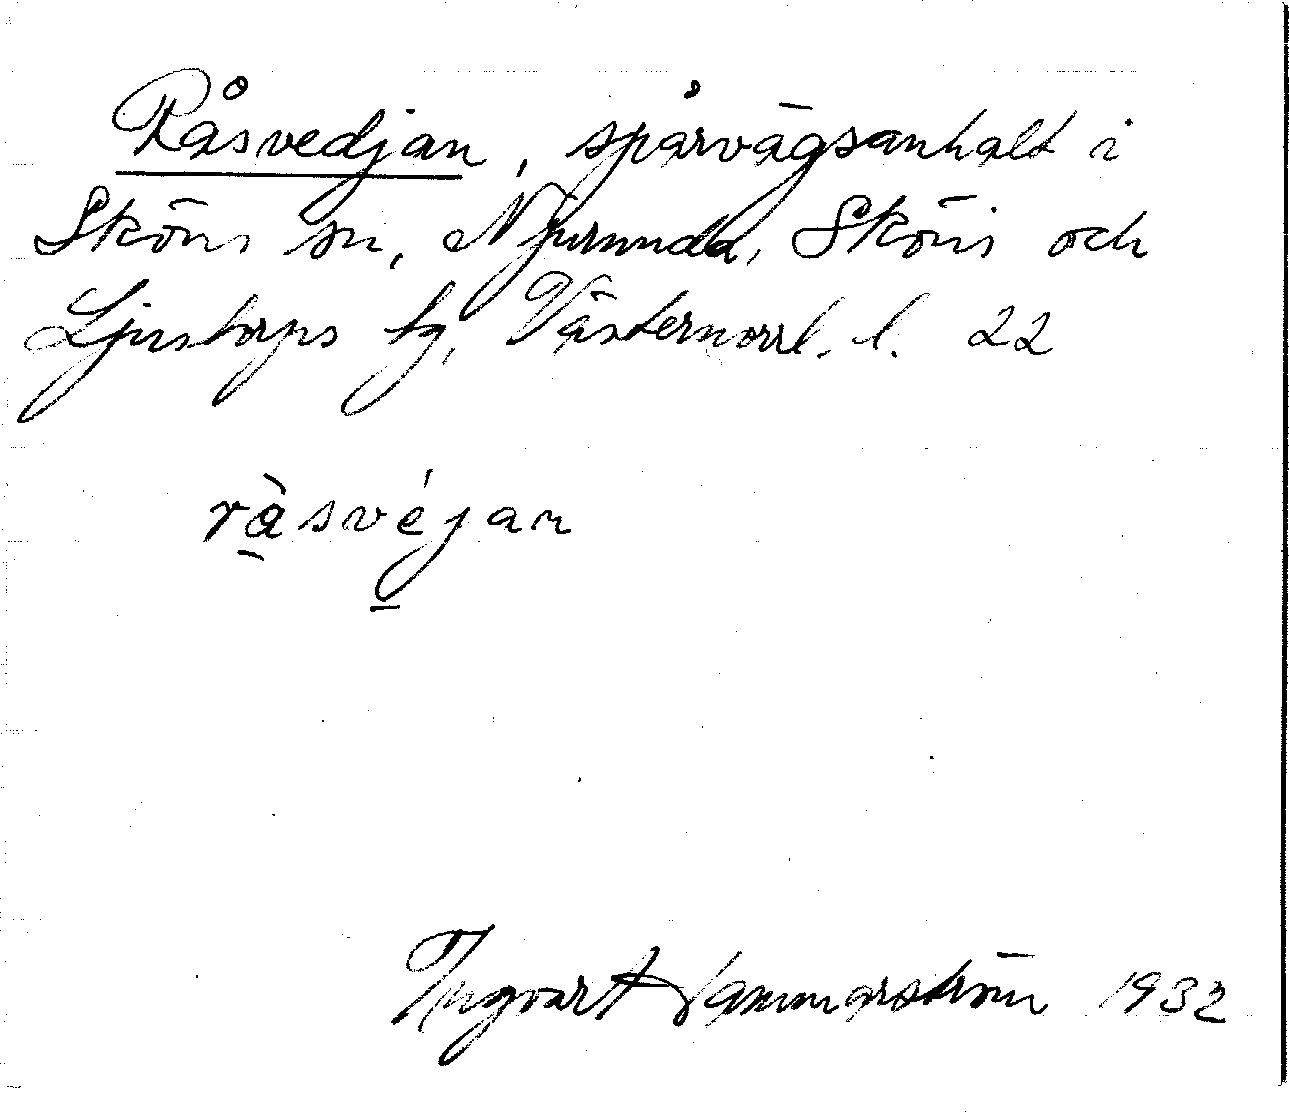 Råsvedjan, spårvägsanhalt i
Sköns sn, Njurunda, Sköns och
Ljustorps tg, Västernorrl. l. 22
ràsvéjan
Ingvart Hammarström 1932